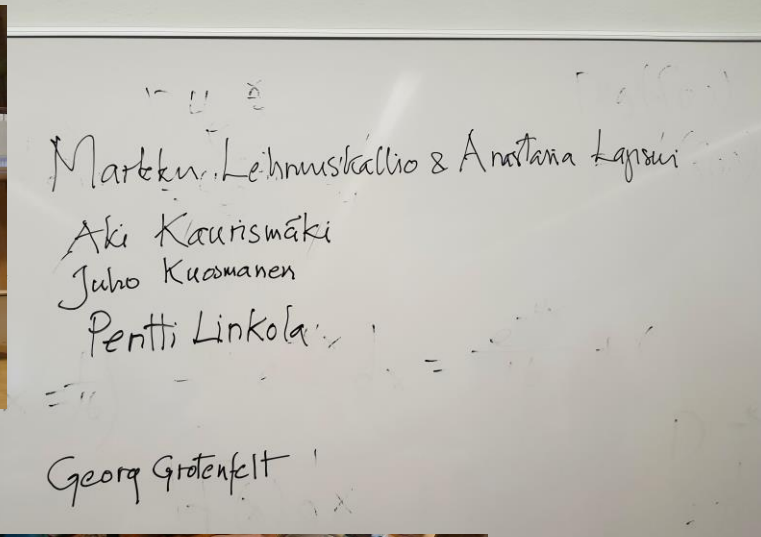 Markku Lehmuskallio & Anastasia Lapsui
Aki Kaurismäki
Juho Kuosmanen
Pentti Linkola
Georg Grotenfelt